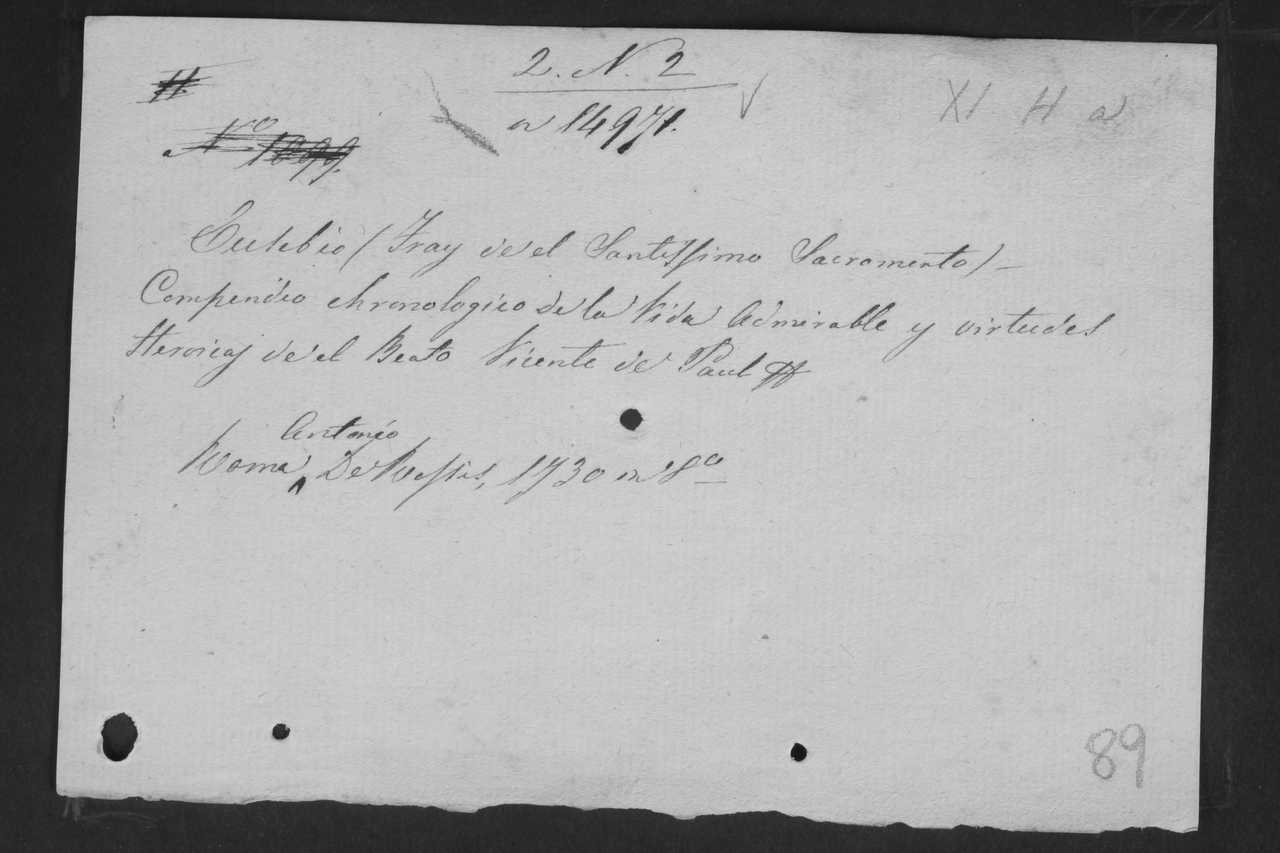 H.
2. N. 2
a 14971.
XI H a
Nro 1099.
Eusebio (Fray de el Santissimo Sacramento) —
Compendio chronologico de la Vida Admirable y virtudes
Heroicas de el Beato Vicente de Paul H
Antonio
Roma, De Rossis, 1730 in 8º
89